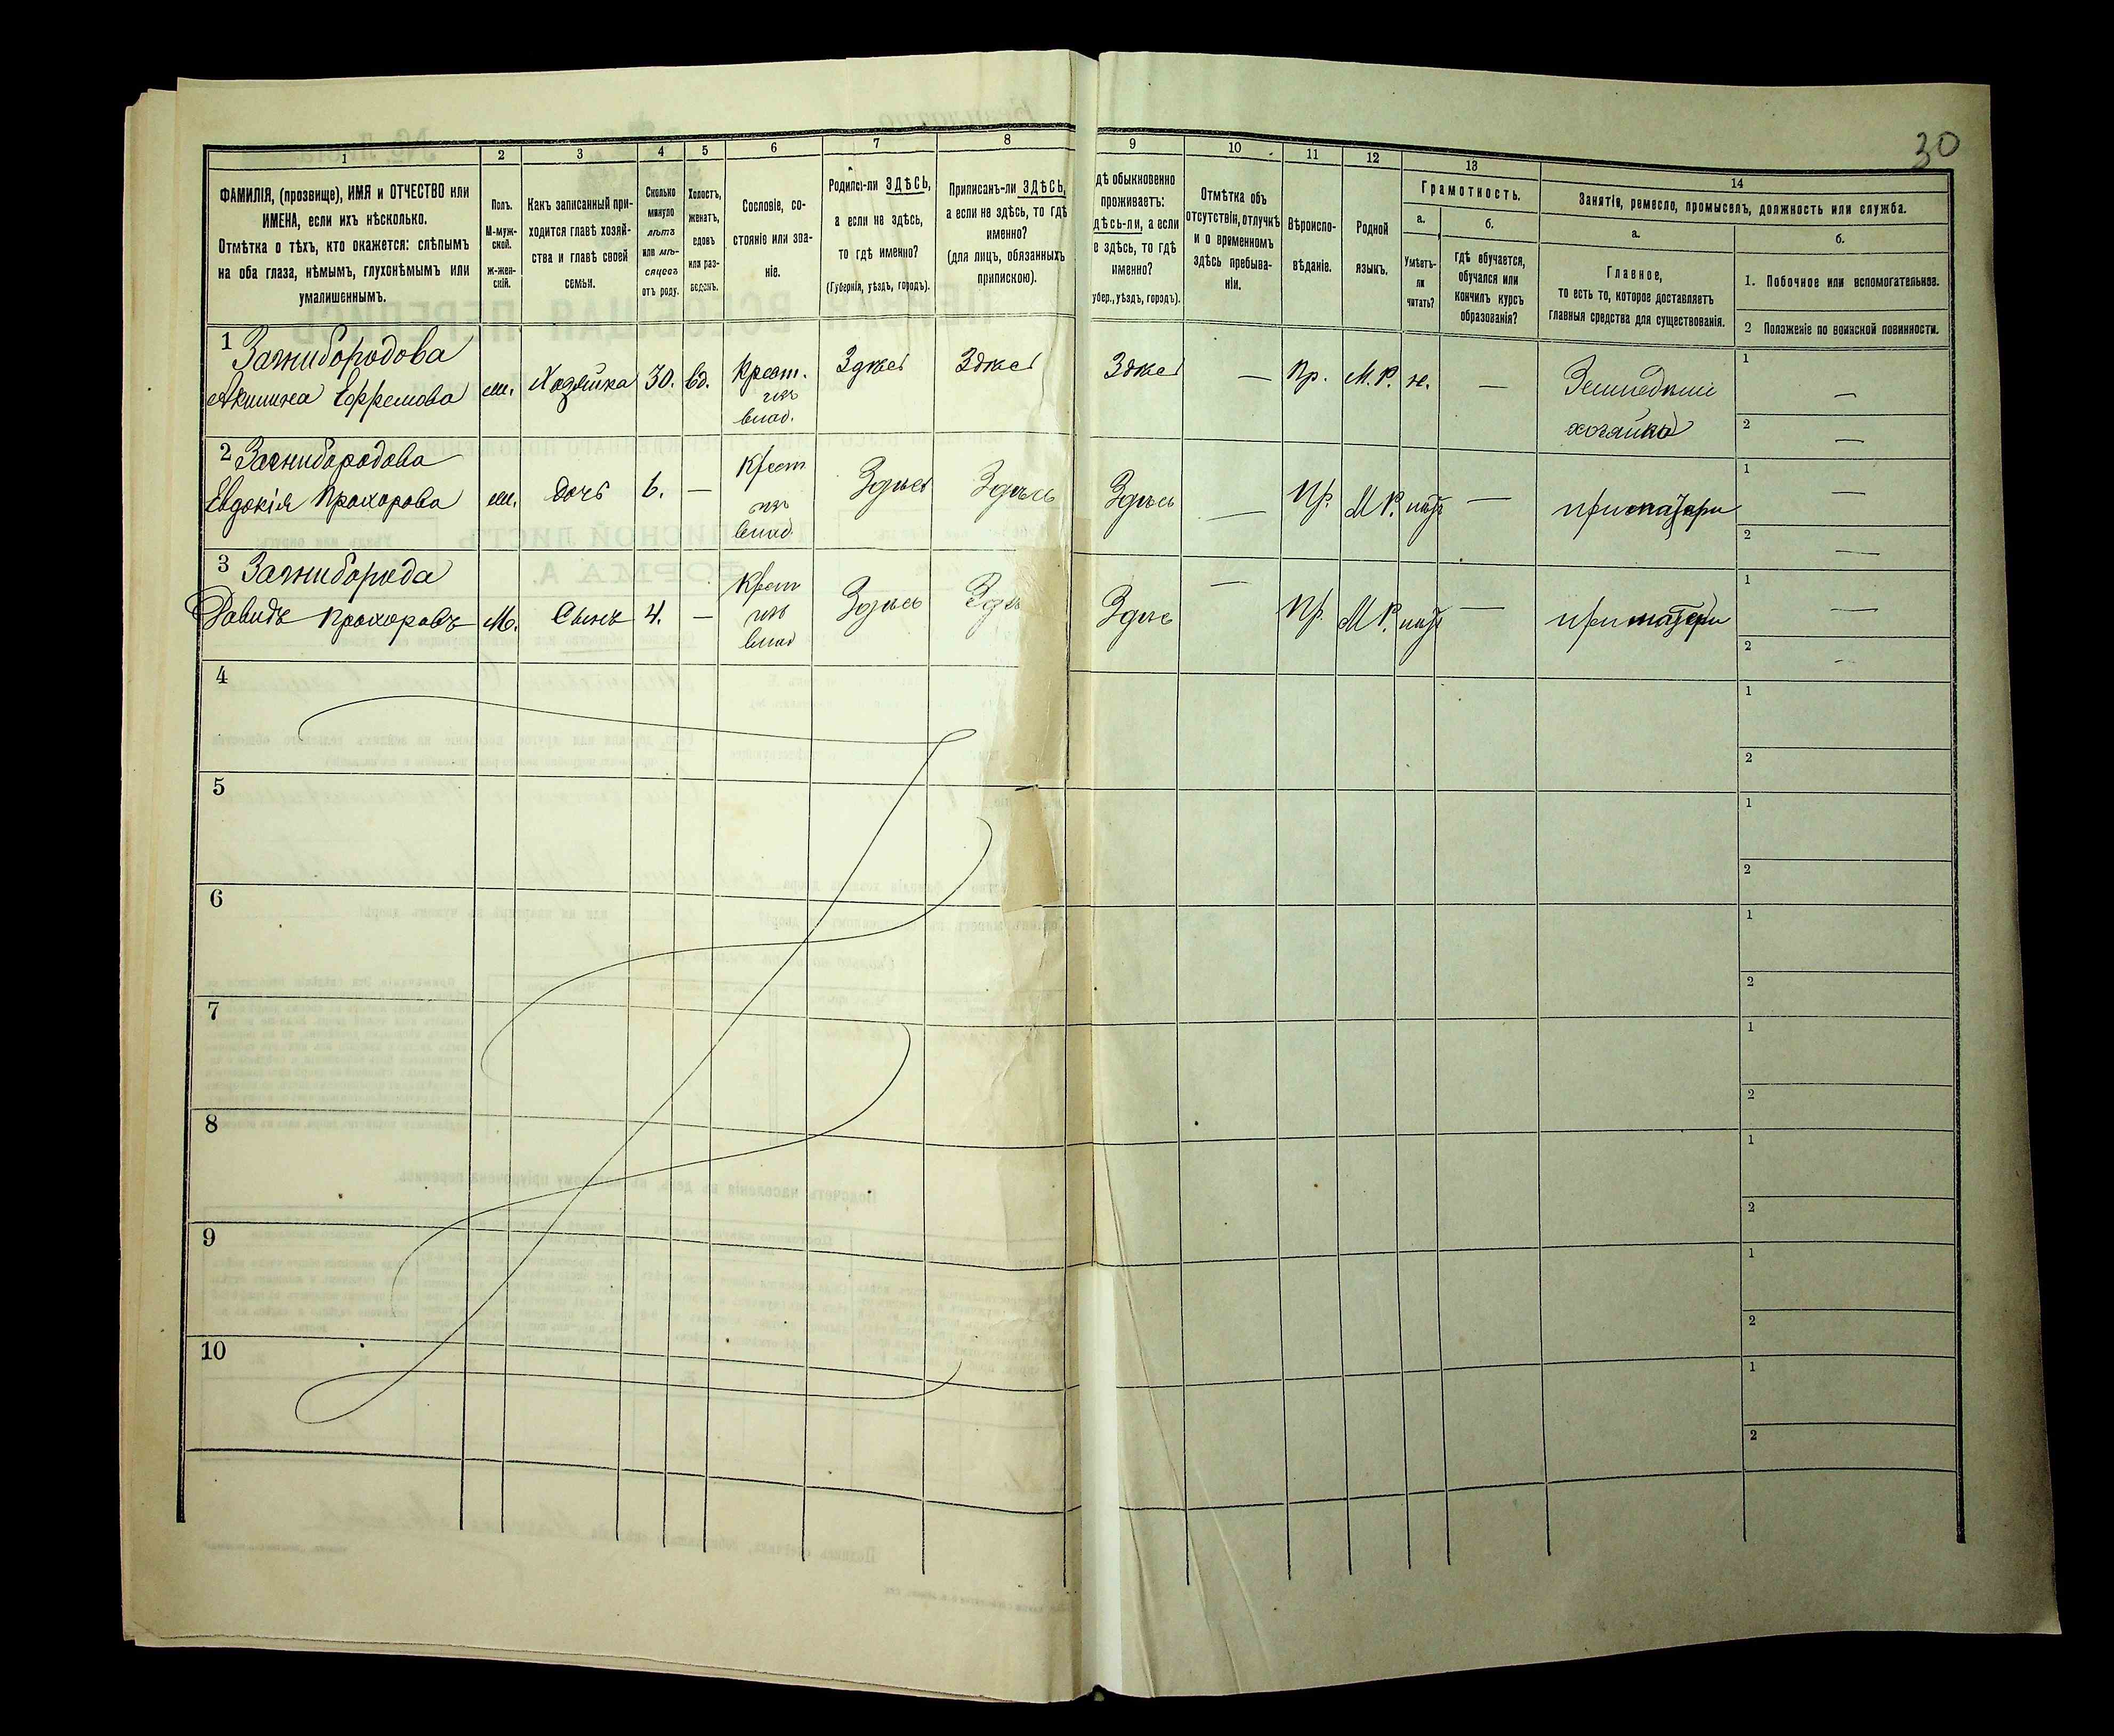 30
1 2 3 4 5 6 7 8 9 10 11 12 13 14
ФАМИЛІЯ, (прозвище), ИМЯ и ОТЧЕСТВО или
ИМЕНА, если ихъ нѣсколько.
Отмѣтка о тѣхъ, кто окажется: слѣпымъ
на оба глаза, нѣмымъ, глухонѣмымъ или
умалишеннымъ.
Полъ.
М-муж-
ской.
ж-жен-
скій.
Какъ записанный при-
ходится главѣ хозяй-
ства и главѣ своей
семьи.
Сколько
минуло
лѣтъ
или мѣ-
сяцевъ
отъ роду.
Холостъ,
женатъ,
вдовъ
или раз-
веденъ.
Сословіе, со-
стояніе или зва-
ніе.
Родился-ли ЗДѢСЬ,
а если не здѣсь,
то гдѣ именно?
(Губернія, уѣздъ, городъ).
Приписанъ-ли ЗДѢСЬ,
а если не здѣсь, то гдѣ
именно?
(для лицъ, обязанныхъ
припискою).
дѣ обыкновенно
проживаетъ:
дѣсь-ли, а если
е здѣсь, то гдѣ
именно?
убер., уѣздъ, городъ).
Отмѣтка объ
отсутствіи, отлучкѣ
и о временномъ
здѣсь пребыва-
ніи.
Вѣроиспо-
вѣданіе.
Родной
языкъ.
Грамотность.
а.
Умѣетъ-
ли
читать?
б.
гдѣ обучается,
обучался или
кончилъ курсъ
образованія?
Занятія, ремесло, промыселъ, должность или служба.
а.
Главное,
то есть то, которое доставляетъ
главныя средства для существованія.
б.
1. Побочное или вспомогательное.
2 Положеніе по воинской повинности.
1 Загнибородова
Акилина Ефремова ж. Хозяйка 30. вд. Крест. Здѣсь Здѣсь Здѣсь — Пр. М.Р. н. —
изъ
влад.
хозяйка
1 —
2 —
2 Загнибородова
Евдокія Прохорова ж. дочь 6. — Крест Здѣсь Здѣсь Здѣсь — Пр. М Р. — при матери
изъ
влад.
1 —
2 —
3 Загниборода
Давидъ Прохоровъ М. Сынъ 4. — Крест Здѣсь Здѣ Здѣсь — Пр. М Р. — при матери
изъ
влад
1 —
2 -
4
1
2
5
1
2
6
1
2
7
1
2
8
1
2
9
1
2
10
1
2